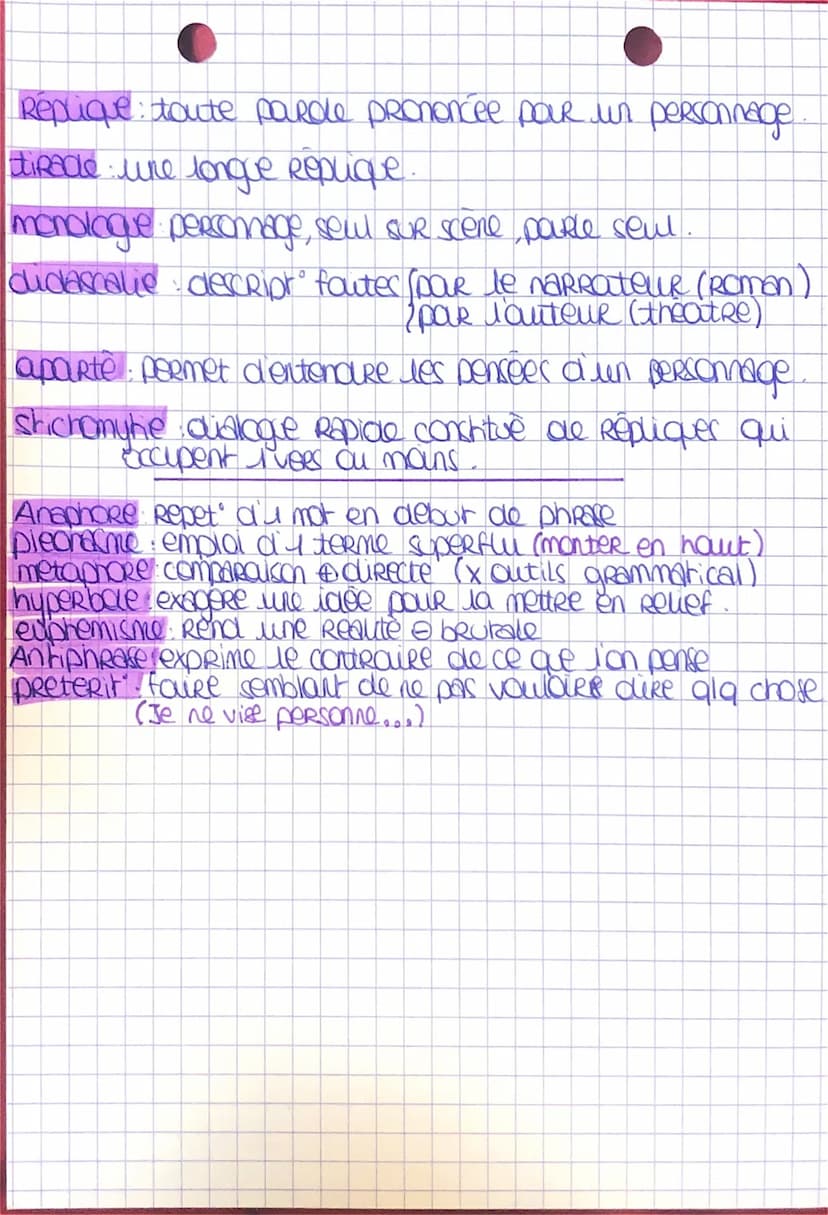 Réplique : toute parole prononcée par un personnage.
tirade : une longue réplique.
monologue : personnage, seul sur scène, parle seul.
didascalie : descript° faites { par le narrateur (roman)
{ par l'auteur (théâtre)
aparté : permet d'entendre les pensées d'un personnage.
stichomythie : dialogue rapide constitué de répliques qui
occupent 1 vers ou moins.
Anaphore : Repet° d'1 mot en debut de phrase
pleonasme : emploi d'1 terme superflu (monter en haut)
metaphore : comparaison ⊕ directe (x outils grammatical)
hyperbole : exagère une idée pour la mettre en relief.
euphemisme : Rend une realité ⊖ brutale
Antiphrase : exprime le contraire de ce que l'on pense
preterit° : faire semblant de ne pas vouloire dire qlq chose
(Je ne vise personne...)